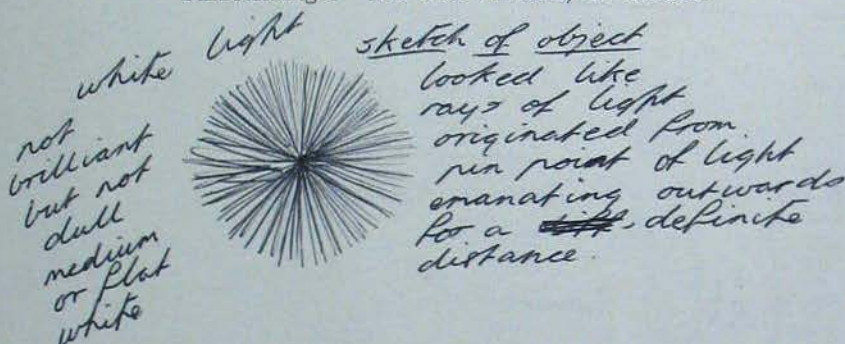 white light
not
brilliant
but not
dull
medium
or flat
white
sketch of object
looked like
rays of light
originated from
pin point of light
emanating outwards
for a definite
distance.